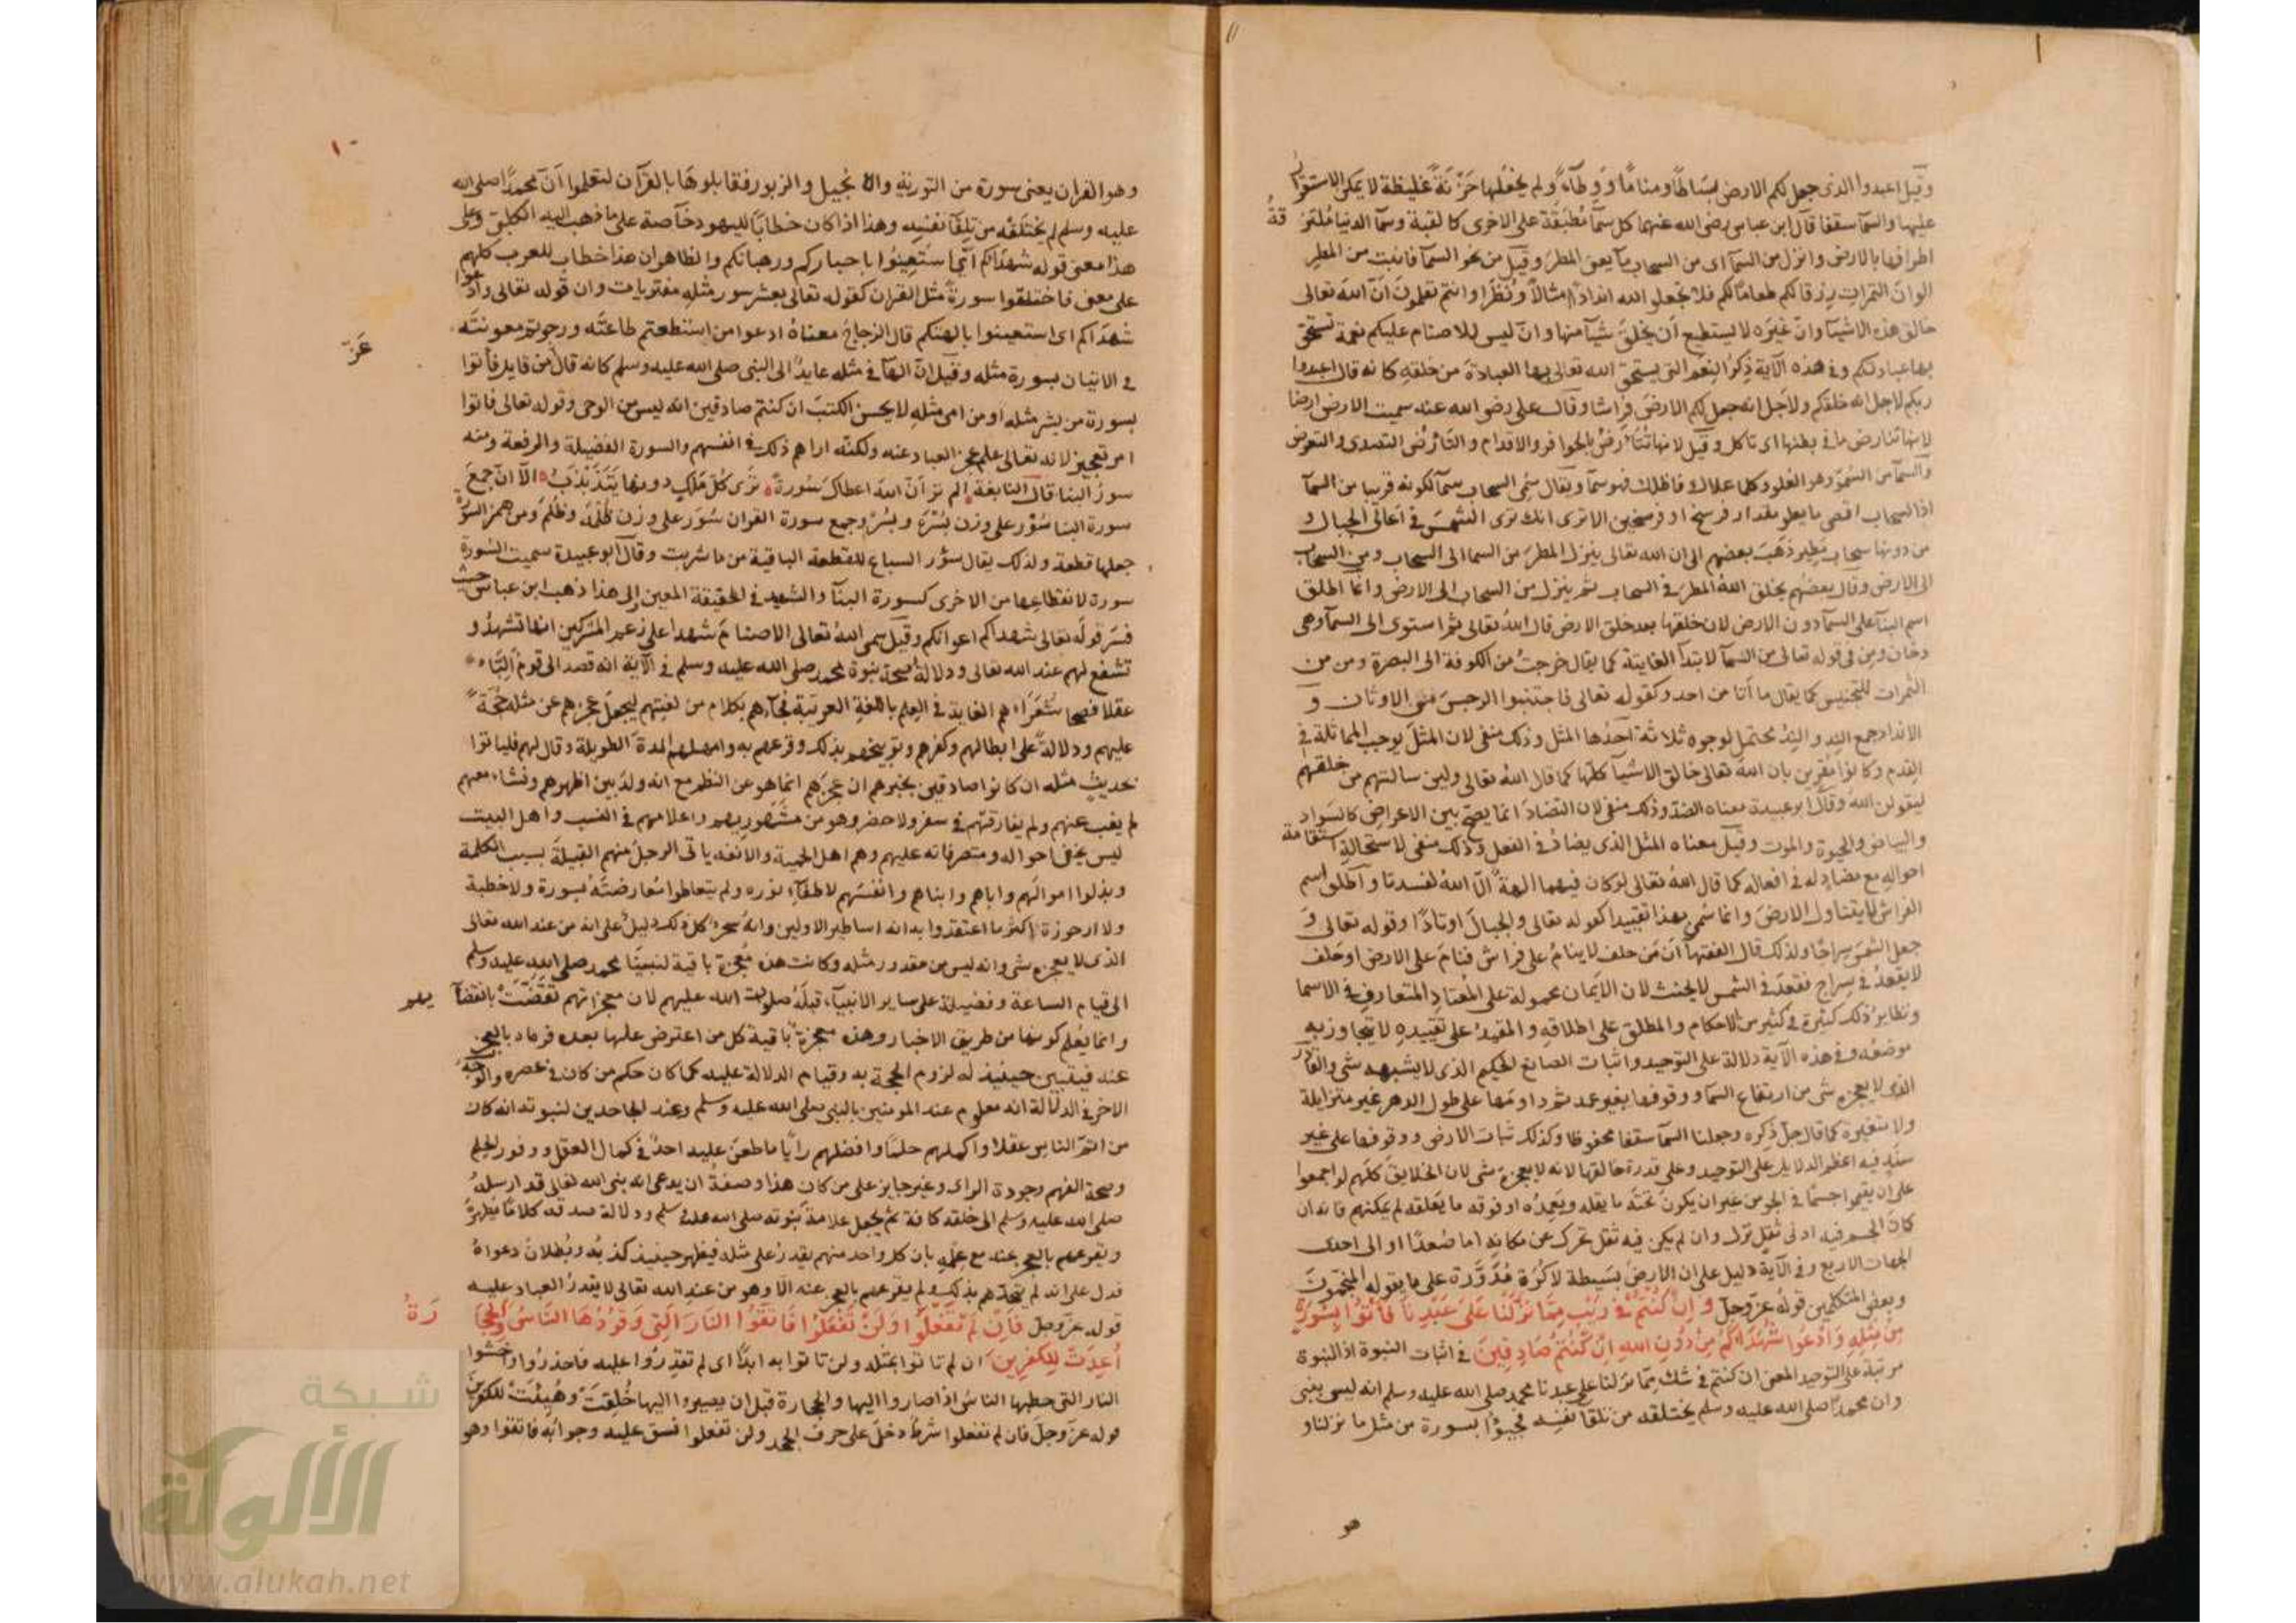 وقيل اعبدوا الذى جعل لكم الارض بساطًا ومنامًا ووطاءً ولم يجعلها حَزْنَةً غليظة لا يمكن الاستقرار
عليها والسمآ سقفا قال ابن عباس رضى الله عنهما كل سمآ مُطبَقَة على الاخرى كالقبة وسمآ الدنيا مُلتَزِقةٌ
اطرافها بالارض وانزل من السمآ اى من السحاب مآ يعنى المطر وقيل من نحو السمآ فانبت من المطر
الوان الثمرات رزقا لكم طعاما لكم فلا تجعلوا لله اندادًا امثالاً ونُظَرا وانتم تعلمون اَنّ الله تعالى
خالق هذه الاشيآ وانّ غيرَه لا يستطيع اَن يخلقَ شيآ منها وانّ ليس للاصنام عليكم نعمة تستحق
بها عبادتكم وفى هذه الآية ذِكرُ النِعَم التى يستحق الله تعالى بها العبادة من خلقه كانه قال اعبدوا
ربكم لاجل انه خلقكم ولاَجل انه جعل لكم الارضَ فِراشا وقال على رضى الله عنه سميت الارض ارضا
لانها تتارض ما فى بطنها اى تاكل وقيل لانها تتَأرضُ بالحوافر والاقدام والتأرُض التصدى والتعرض
والسمآ من السُمُوّ وهو العلو وكلما علاك فاظلك فهو سمآ ويقال سُمِى السحاب سمآ لكونه قريبا من السمآ
اذ السحاب اقصى ما يعلو مقدار فرسخ او فرسخين الا ترى انك ترى الشمسَ فى اعالى الجبال و
من دونها سحاب مطير ذهَبَ بعضهم الى ان الله تعالى ينزل المطرَ من السما الى السحاب ومن السحاب
الى الارض وقال بعضُهم يخلق اللهُ المطرَ فى السحاب ثم ينزل من السحاب الى الارض وانما اطلق
اسم البنآ على السمآ دون الارض لان خلقَها بعد خلق الارض قال اللهُ تعالى ثم استوى الى السمآ وهى
دخان ومِن فى قوله تعالى من السمآ لابتدآ الغاية كما يقال خرجتُ من الكوفة الى البصرة ومن من
الثمرات للتجنيس كما يقال ما اَتا من احد وكقوله تعالى فاجتنبوا الرجسَ من الاوثان و
الاندادَ جمع النِدِ والنِدُ يحتمل لوجوه ثلاثة اَحَدُها المثل وذلك منفى لان المثلَ يوجب المماثلة فى
القِدم وكانوا مُقرين بان اللهَ تعالى خالق الاشيآ كلها كما قال اللهُ تعالى ولين سالتهم من خلقهم
ليقولن الله وقال ابو عبيدة معناه الضدّ وذلك منفى لان التضادَ انما يصحّ بين الاعراض كالسَواد
والبياض والحيوة والموت وقيل معناه المثل الذى يضادُ فى الفعل وذلك منفى لاستحالةِ استقامة
احوالهِ مع مضادٍ له فى افعاله كما قال اللهُ تعالى لو كان فيهما الهةٌ الّا اللهُ لفسدتا واطلق اسم
الفراش لا يتناول الارضَ وانما سُمى بهذا تقييدا كقوله تعالى والجبالَ اوتادًا وقوله تعالى وَ
جعل الشمسَ سِراجًا ولذلك قال الفقهآ اَن مَن حلف لا ينامُ على فراش فنامَ على الارض او حَلف
لا يقعدُ فى سِراج فقعَدَ فى الشمس لا يحنث لان الايمان محمولة على المُعتادِ المتعارف فى الاسما
ونظايرُ ذلك كثيرة فى كثير من الاحكام والمطلق على اطلاقه والمقيدُ على تقييده لا يتجاوز به
موضعُه وفى هذه الآية دلالة على التوحيد واثبات الصانع الحكيم الذى لا يشبهه شى والقادر
الذى لا يعجزه شى من ارتفاع السمآ ووقوفها بغير عمد ثم دوامَها على طول الدهر غير متزايلة
ولا متغيرة كما قال جلّ ذِكره وجعلنا السمآ سقفا محفوظا وكذلك ثبات الارض ووقوفها على غير
سنَدٍ فيه اعظم الدلايل على التوحيد وعلى قدرة خالقها لانه لا يعجزه شى لان الخلايق كلهم لو اجمعوا
على ان يقيموا جسمًا فى الجو من غير ان يكونَ تحتَه ما يقله ويَعمِدُه او فوقه ما يعلقه لم يمكنهم فانه ان
كان الجسم فيه ادنى ثقل نزل وان لم يكن فيه ثقل تحرك عن مكانهِ اما صُعدًا او الى احدى
الجهات الاربع وفى الآية دليل على ان الارضَ بسيطة لا كرُة مُدَوّرة على ما يقوله المنجمون
وبعض المتكلمين قوله عزّ وجلّ وَإِنْ كُنْتُمْ فِي رَيْبٍ مِمَّا نَزَّلْنَا عَلَى عَبْدِنَا فَأْتُوا بِسُورَةٍ
مِنْ مِثْلِهِ وَادْعُوا شُهَدَاءَكُمْ مِنْ دُونِ اللهِ إِنْ كُنْتُمْ صَادِقِينَ فى اثبات النبوة اذ النبوة
مرتبة على التوحيد المعنى ان كنتم فى شك مما نزلنا على عبدنا محمد صلى الله عليه وسلم انه ليس بنبى
وان محمدًا صلى الله عليه وسلم يختلقه من تلقآ نفسِه فجيؤا بسورة من مثل ما نزلنا و
هو
١٠
وهو القران يعنى سورة من التورية والانجيل والزبور فقابلوهَا بالقرآن لتعلموا اَنّ محمدًا صلى الله
عليه وسلم لم يختلقه من تلقآ نفسِه وهذا اذا كان خطابًا لليهود خآصة على ما ذهب اليه الكلبى وعلى
هذا معنى قوله شهدآكم اَى استعِينُوا باحباركم ورهبانكم والظاهر ان هذا خطاب للعرب كلهم
على معنى فاختلقوا سورةً مثل القران كقوله تعالى بعشر سور مثله مفتريات وان قوله تعالى وادعوا
شهدآكم اى استعينوا بالهتكم قال الزجاجُ معناهُ ادعوا من استطعتم طاعتَه ورجوتم معونتَه
عَزّ
فى الاتيان بسورة مثله وقيل انّ الهآ فى مثله عايدٌ الى النبى صلى الله عليه وسلم كانه قالَ مِن قايل فأتوا
بسورة من بشر مثله او من امى مثله لا يحسن الكتبَ ان كنتم صادقين انه ليس من الوحى وقوله تعالى فاتوا
امر تعجيز لانه تعالى علم عجز العباد عنه ولكنّه اراهم ذلك فى انفسهم والسورة الفضيلة والرفعة ومنه
سورُ البنا قال النابغة الم تر اَنّ اللهَ اعطاك سُورةً ترى كُلّ مَلْكٍ دونها يَتَذَبْذَبُ الآ انّ جمعَ
سورة البنا سُوْر على وزن بُسْرَة وبُسْر وجمع سورة القران سُوَر على وزن ظُلمَة وظُلَم ومن همز السؤرة
جعلها قطعة ولذلك يقال سؤر السباع للقطعة الباقية من ما شربت وقال ابو عبيدة سميت السُورة
سورة لانقطاعها من الاخرى كسورة البنآ والشهيد فى الحقيقة المعين والى هذا ذهب ابن عباس حيث
فسّر قوله تعالى شهدآكم اعوانكم وقيل سمى اللهُ تعالى الاصنامَ شهدا على زعم المشركين انها تشهدُ و
تشفع لهم عند الله تعالى ودلالة صحة نبوة محمد صلى الله عليه وسلم فى الآية انه قصد الى قوم الِبّاء
عقلا فصحا شُعَرَآء هم الغاية فى العِلم باللغة العربيّة فجآءهم بكلام من لغتهم ليجعلَ عجزهم عن مثله حُجّةً
عليهم ودلالةً على ابطالهم وكفرهم وتوبيخهم بذلك وقرعهم به وامهلهم المدة الطويلة وقال لهم فلياتوا
بحديثٍ مثله ان كانوا صادقين يخبرهم ان عجزَهم انما هو عن النظم مع انه ولدَ بين اظهرهم ونشاء معهم
لم يغب عنهم ولم يفارقهم فى سفر ولا حضر وهو من مشهوريهم واعلامهم فى النسب واهل البيت
ليس يخفى احواله ومتصرفاته عليهم وهم اهل الحمية والانفه ياتى الرجلُ منهم القبيلةَ بسبب الكلمة
وبذلوا اموالَهم واباهم وابناهم وانفسَهم لاطفآء نوره ولم يتعاطوا مُعارضتَهُ بسورة ولا خطبة
ولا ارجوزة اكثر ما اعتقدوا به انه اساطير الاولين وانه سحرٌ كل ذلك دليلٌ على انه من عند الله تعالى
الذى لا يعجزه شى وانه ليس من مقدور مثله وكانت هذه مُعجزة باقية لنبيِنا محمد صلى الله عليه وسلم
الى قيام الساعة وفضيلة على ساير الانبيآء قبلَهُ صلوات الله عليهم لان معجزاتهم تقَضّتْ بانقضآيهم
وانما يُعلم كونها من طريق الاخبار وهذه معجزة باقية كل من اعترض عليها بعده قرعناه بالعجز
عنه فيتبين حينيذ له لزوم الحجة به وقيام الدلالة عليه كما كان حكم من كان فى عصره والوجهُ
الاخر فى الدلالة انه معلوم عند المومنين بالنبى صلى الله عليه وسلم وعند الجاحدين لنبوته انه كان
من اتم الناس عقلا واكملهم حلمًا وافضلهم رايًا ما طعَن عليه احدٌ فى كمال العقل ووفور الحلم
وصحة الفهم وجودة الراى وغير جايز على من كان هذا وصفهُ ان يدعى انه نبى الله تعالى قد ارسلهُ
صلى الله عليه وسلم الى خلقه كافة ثم يجعل علامةَ نبوته صلى الله عليه وسلم ودلالة صدقه كلامًا يُظهِرهُ
ويقرعهم بالعجز عنه مع علمهِ بان كل واحد منهم يقدرُ على مثله فيظهر حينيذ كذبُه وبُطلانُ دعواهُ
فدل على انه لم يتحدّهم بذلك ولم يقرعهم بالعجز عنه الّا وهو من عندِ الله تعالى لا يقدرُ العباد عليه
قوله عزّ وجلّ فَإِنْ لَمْ تَفْعَلُوا وَلَنْ تَفْعَلُوا فَاتَّقُوا النَّارَ الَّتِي وَقُودُهَا النَّاسُ وَالْحِجَارَةُ
أُعِدَّتْ لِلْكَفِرِينَ ان لم تاتوا بمثله ولن تاتوا به ابدًا اى لم تقدِرُوا عليه فاحذرُوا واخشوا
النار التى حطبها الناسُ اذا صاروا اليها والحجارة قبل ان يصيروا اليها خُلِقَتْ وهُيِئَتْ للكفرين
قوله عزّ وجلّ فان لم تفعلوا شرطٌ دخلَ على حرف الجحد ولن تفعلوا نسق عليه وجوابُه فاتقوا وهو
شبكة
الألوكة
www.alukah.net